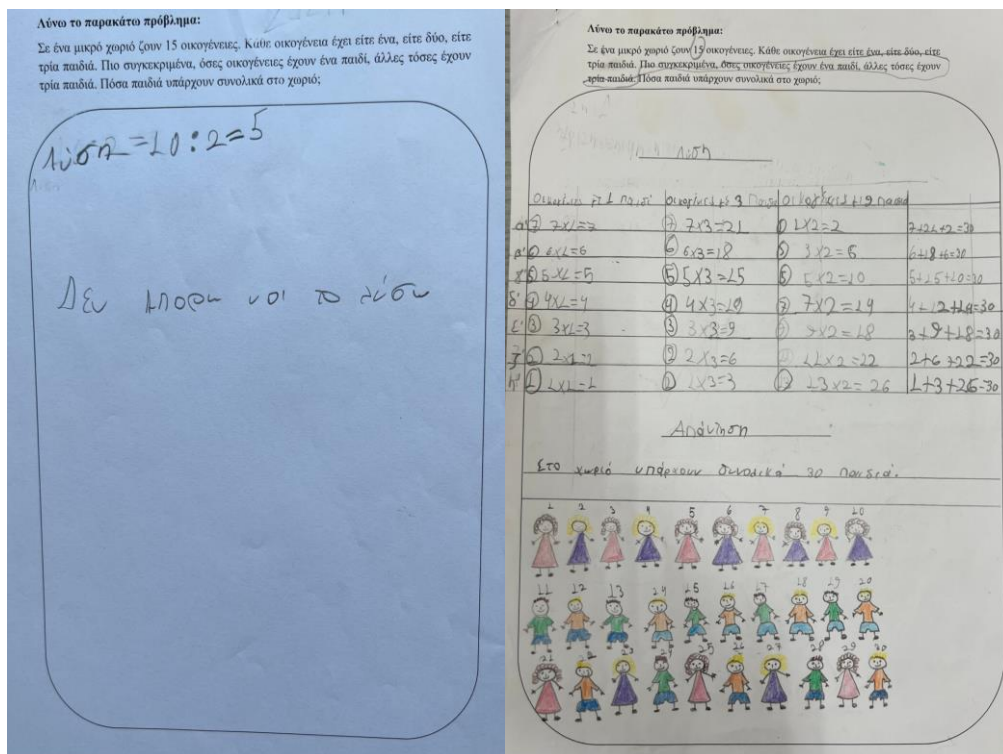 Λύνω το παρακάτω πρόβλημα:
Σε ένα μικρό χωριό ζουν 15 οικογένειες. Κάθε οικογένεια έχει είτε ένα, είτε δύο, είτε
τρία παιδιά. Πιο συγκεκριμένα, όσες οικογένειες έχουν ένα παιδί, άλλες τόσες έχουν
τρία παιδιά. Πόσα παιδιά υπάρχουν συνολικά στο χωριό;
Λύση=10:2=5
Δεν μπορώ να το λύσω
Λύνω το παρακάτω πρόβλημα:
Σε ένα μικρό χωριό ζουν 15 οικογένειες. Κάθε οικογένεια έχει είτε ένα, είτε δύο, είτε
τρία παιδιά. Πιο συγκεκριμένα, όσες οικογένειες έχουν ένα παιδί, άλλες τόσες έχουν
τρία παιδιά. Πόσα παιδιά υπάρχουν συνολικά στο χωριό;
Λύση
7 7x1=7 7 7x3=21 1 1x2=2 7+21+2=30
6 6x1=6 6 6x3=18 3 3x2=6 6+18+6=30
5 5x1=5 5 5x3=15 5 5x2=10 5+15+10=30
δ' 4 4x1=4 4 4x3=12 7 7x2=14 4+12+14=30
ε' 3 3x1=3 3 3x3=9 9x2=18 3+9+18=30
2 2x1=2 2 2x3=6 11x2=22 2+6+22=30
1 1x1=1 1 1x3=3 13x2=26 1+3+26=30
Απάντηση
Στο χωριό υπάρχουν συνολικά 30 παιδιά.
1 2 3 4 5 6 7 8 9 10
11 12 13 14 15 16 17 18 19 20
21 22 23 24 25 26 27 28 29 30